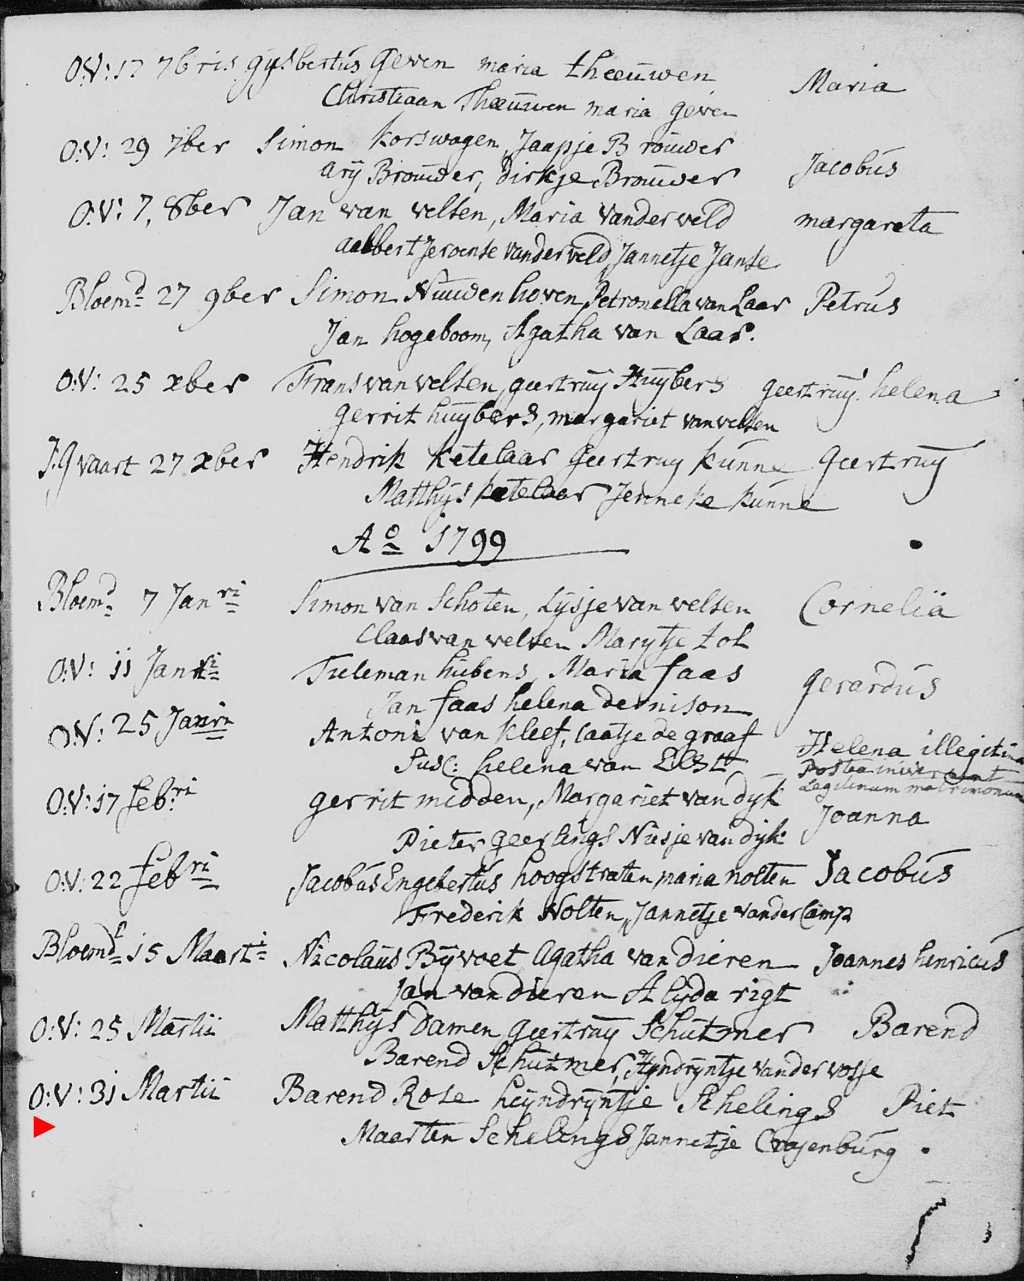 O:V: 17 7bris gijsbertús Geven maria theeúwen Maria
Christiaan Theeúwen maria geven
O:V: 29 7ber Simon Korswagen, Jaapje Broúwer Jacobús
Arij Broúwer, Dirkje Broúwer
O:V: 7, 8ber Jan van velsen, Maria vanderveld margareta
Aalbert Jeroense vanderveld Jannetje Janse
Bloemd 27 9ber Simon Núwenhoven, Petronella van Laar Petrús
Jan hogeboom, Agatha van Laar.
O:V: 25 xber Frans van velsen, geertruij Huijbers geertruij helena
gerrit huijbers, margariet van velsen
J:Q vaart 27 xber Hendrik Ketelaar Geertruy kúnne Geertruij
Matthijs Ketelaar Jenneke kúnne
Ao 1799
Bloemd 7 Janri Simon van Schoten, Lijsje van velsen Corneliä
Claas van velsen Marijtje tol
O:V: 11 Janri Tieleman húbens, Maria faas Gerardús
Jan faas helena dernison
O:V: 25 Janri Antoni van Kleef, Caatje de graaf Helena illegitima
Susc: helena van Elst Postea inierunt
Legitimum matrimonium
O:V: 17 febri gerrit midden, Margariet van dijk Joanna
Pieter geerlings Niesje van dijk
O:V: 22 febri Jacobús Engebertús hoogstraten, maria nolten Jacobús
Frederik Nolten, Jannetje vander Camp
Bloemd 15 Maarti Nicolaús Bijvoet Agatha van dieren Joannes henricús
Jan van dieren Alijda rigt
O:V: 25 Martii Matthijs Damen geertruij Schútmer Barend
Barend Schútmer, Hyndryntje vander vosje
O:V: 31 Martii Barend Rose heijndrijntje Schelings Piet
Maarten Schelings Jannetje Crajenbúrg